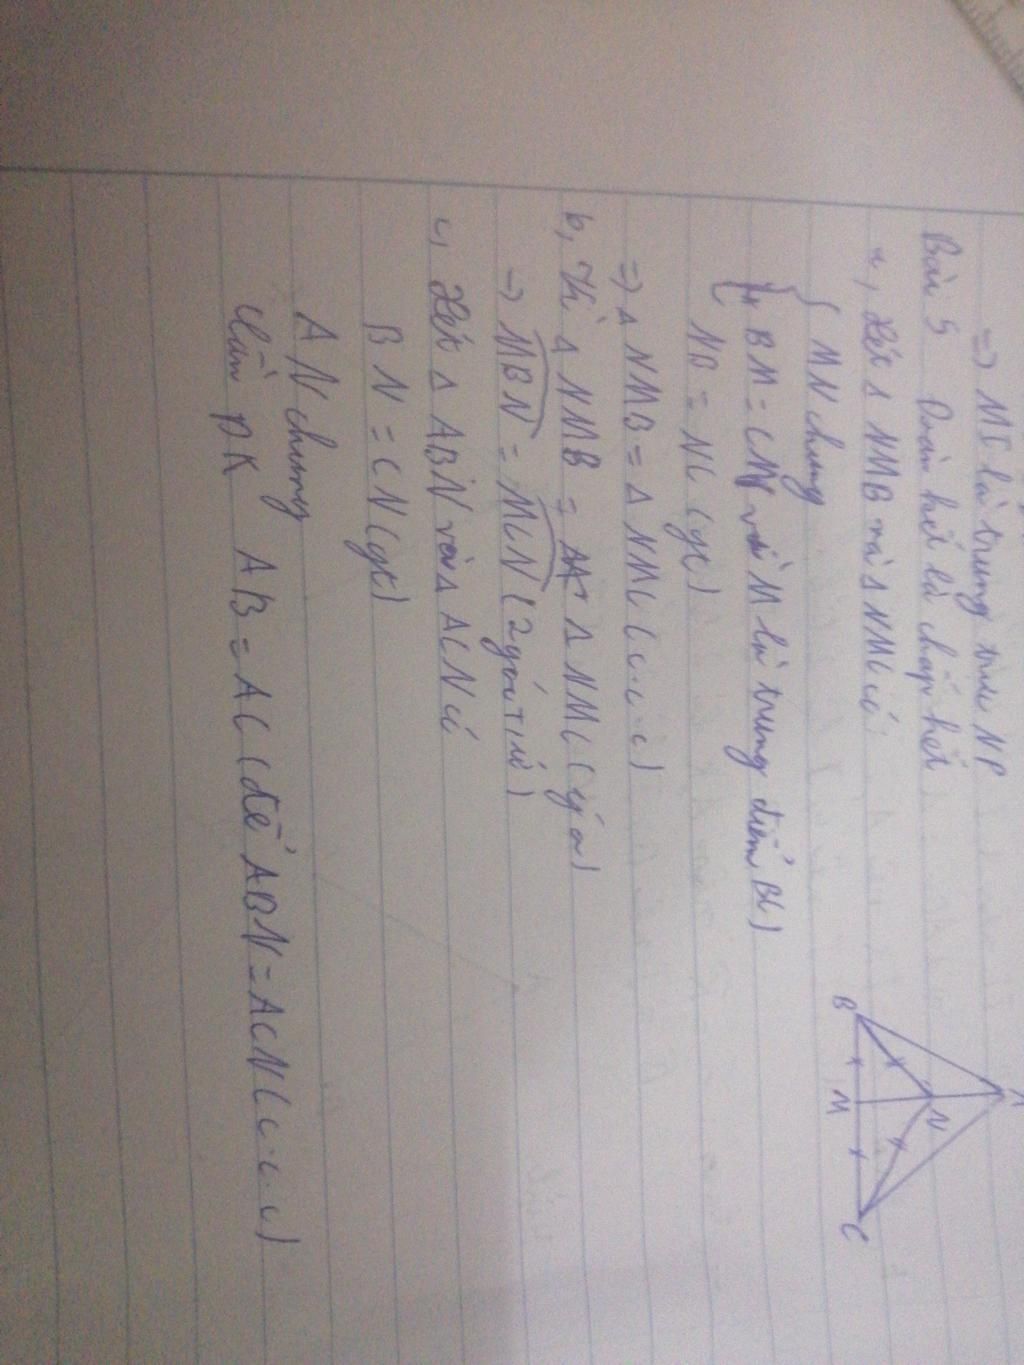 => MI là trung trực NP
Bài 5 Đoàn kết là chấp hết
a, Xét Δ NMB và Δ NMC có
MN chung
BM = CM vì M là trung điểm BC)
NB = NC (gt)
=> Δ NMB = Δ NMC (c.c.c)
b, Vì Δ NMB = Δ NMC (ý a)
=> MBN = MCN (2 góc t.ứ)
c, Xét Δ ABN và Δ ACN có
BN = CN (gt)
AN chung
Cần ĐK AB = AC (để ABN = ACN (c.c.c)
A
N
B
M
C